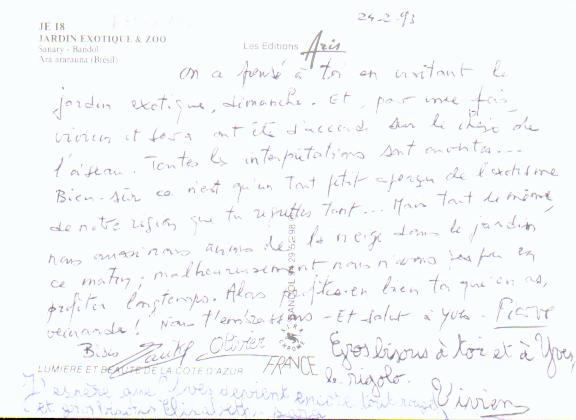 24-2-93
JE 18
JARDIN EXOTIQUE & ZOO
Sanary - Bandol
Ara ararauna (Brésil)
Les Editions Aris
On a pensé à toi en visitant le
jardin exotique, dimanche. Et, pour une fois,
vivien et ont été d'accord sur le choix de
l'oiseau. Toutes les interprétations sont ouvertes...
Bien-sûr ce n'est qu'un tout petit aperçu de l'exotisme
de notre région que tu regrettes tant... Mais tout de même,
nous aussi nous avons de la neige dans le jardin
ce matin; malheureusement nous n'avons pas pu en
profiter longtemps. Alors profites-en bien toi qui en as,
veinarde! Nous t'embrassons - Et salut à Yves. Pierre
Bises Olivier
Gros bisous à toi et à Yves,
le rigolo.
Vivien
BANDOL 94 29 52 98
FRANCE
LUMIERE ET BEAUTE DE LA COTE D'AZUR
J'espère que Yves devient encore tout rouge
et gros bisous